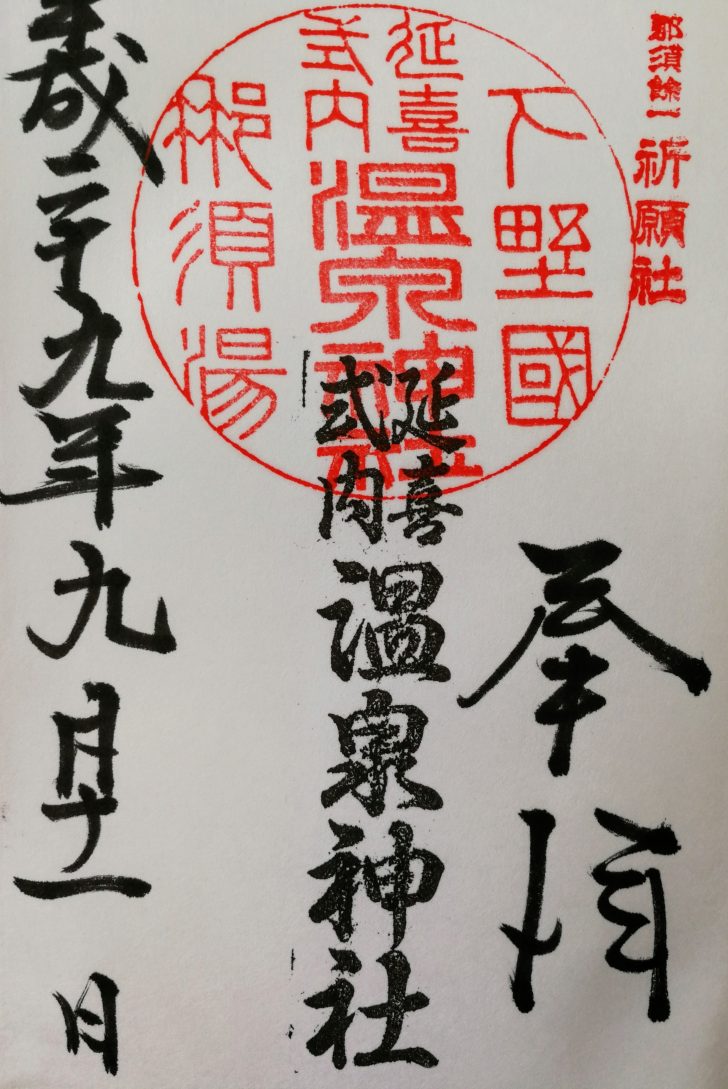 那須餘一
祈願社
奉拝
下野國
延喜
式内
温泉神社
那須湯
延喜
式内
温泉神社
平成二十九年九月十一日